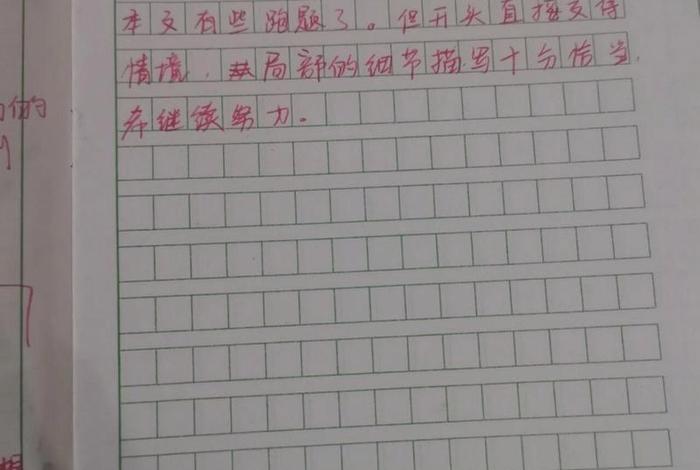 本文有些跑题了。但开头直接交待
情境，局部的细节描写十分恰当，
希继续努力。